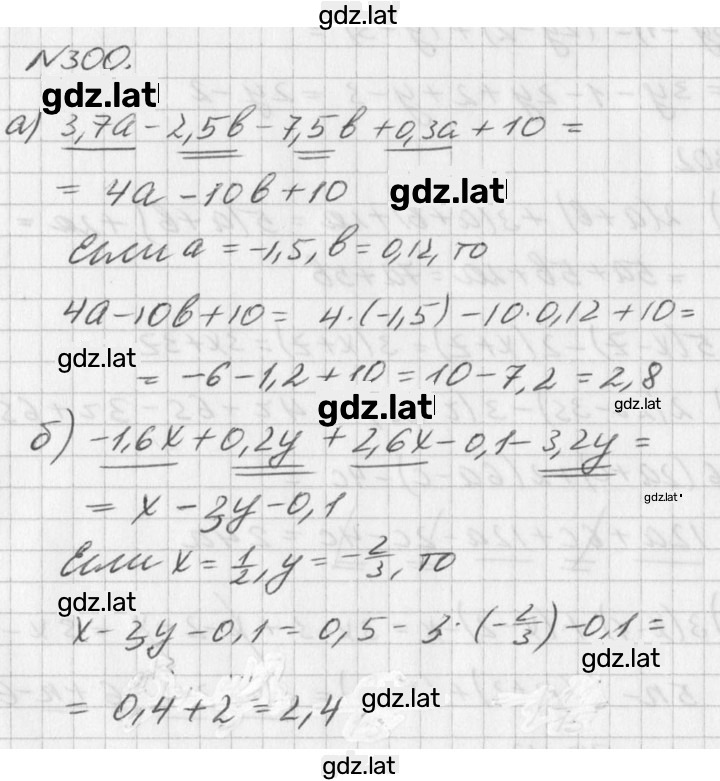 gdz.lat
N300.
gdz.lat
а) 3,7a - 2,5b - 7,5b + 0,3a + 10 =
= 4a - 10b + 10 gdz.lat
Если a = -1,5, b = 0,12, то
4a - 10b + 10 = 4·(-1,5) - 10·0,12 + 10 =
gdz.lat
= -6 - 1,2 + 10 = 10 - 7,2 = 2,8
gdz.lat gdz.lat
б) -1,6x + 0,2y + 2,6x - 0,1 - 3,2y =
= x - 3y - 0,1 gdz.lat
Если x = 1/2, y = -2/3, то
gdz.lat
x - 3y - 0,1 = 0,5 - 3·(-2/3) - 0,1 =
gdz.lat
= 0,4 + 2 = 2,4 gdz.lat
gdz.lat